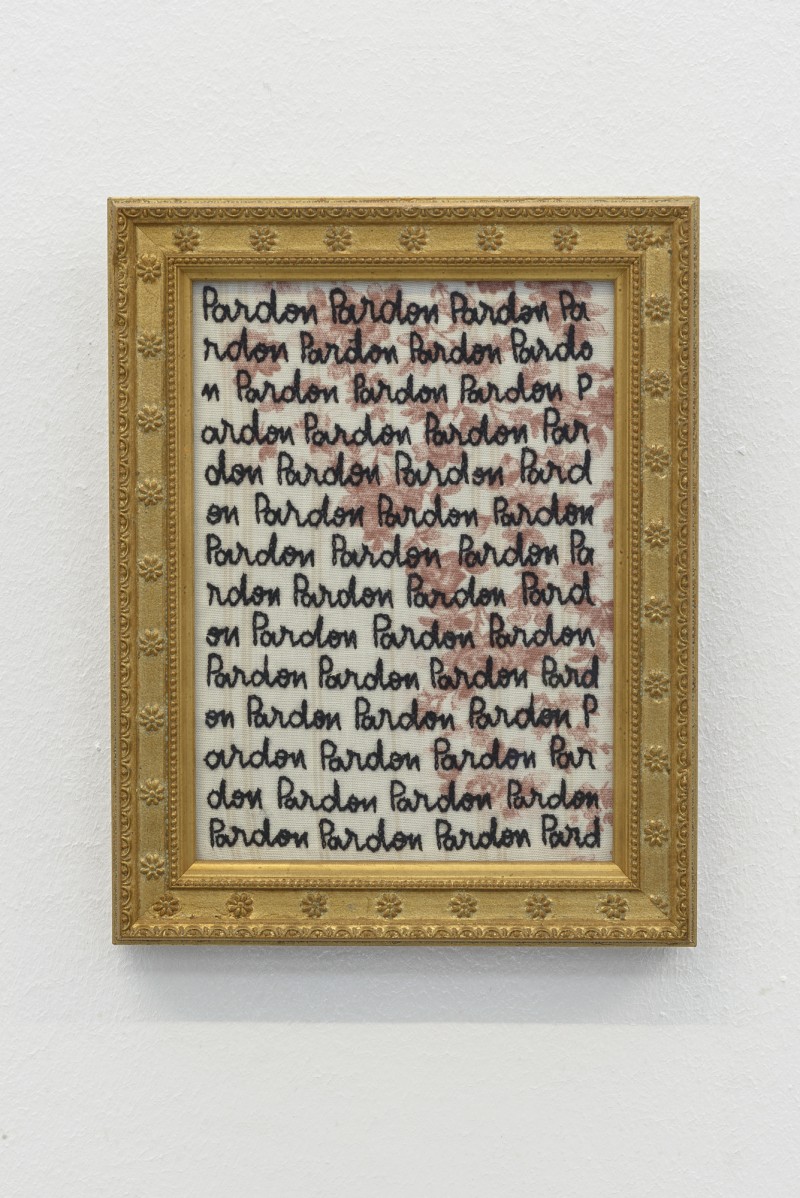 Pardon Pardon Pardon Pa
rdon Pardon Pardon Pardo
n Pardon Pardon Pardon P
ardon Pardon Pardon Par
don Pardon Pardon Pard
on Pardon Pardon Pardon
Pardon Pardon Pardon Pa
rdon Pardon Pardon Pard
on Pardon Pardon Pardon
Pardon Pardon Pardon Pard
on Pardon Pardon Pardon P
ardon Pardon Pardon Par
don Pardon Pardon Pardon
Pardon Pardon Pardon Pard